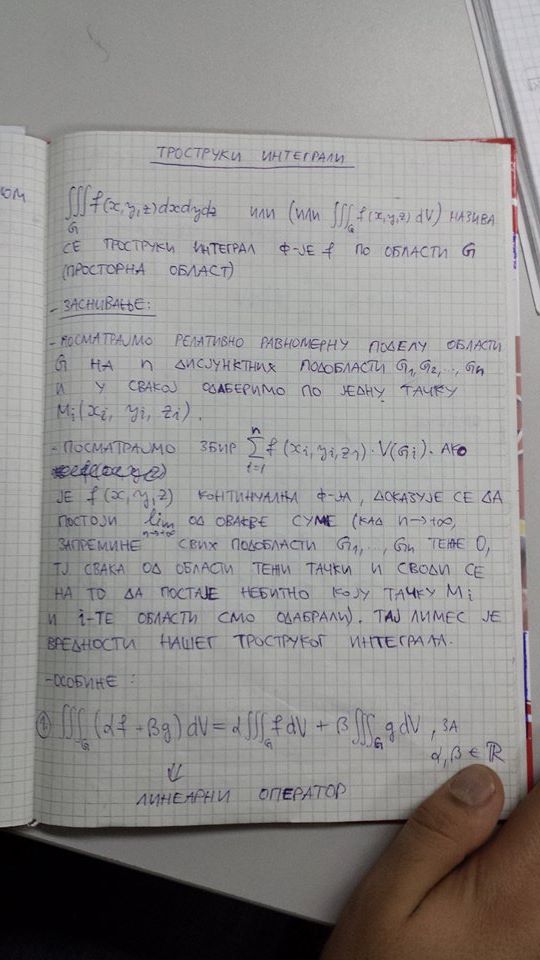 ЮМ
ТРОСТРУКИ ИНТЕГРАЛИ
∭_G f(x,y,z)dxdydz ИЛИ (ИЛИ ∭_G f(x,y,z) dV) НАЗИВА
СЕ ТРОСТРУКИ ИНТЕГРАЛ Ф-ЈЕ f ПО ОБЛАСТИ G
(ПРОСТОРНА ОБЛАСТ)
- ЗАСНИВАЊЕ:
- ПОСМАТРАЈМО РЕЛАТИВНО РАВНОМЕРНУ ПОДЕЛУ ОБЛАСТИ
G НА n ДИСЈУНКТНИХ ПОДОБЛАСТИ G₁, G₂, ..., Gn
И У СВАКОЈ ОДАБЕРИМО ПО ЈЕДНУ ТАЧКУ
Mi(xi, yi, zi).
- ПОСМАТРАЈМО ЗБИР ∑_{i=1}^{n} f(xi, yi, zi)·V(Gi). АКО
ЈЕ f(x,y,z) КОНТИНУАЛНА Ф-ЈА, ДОКАЗУЈЕ СЕ ДА
ПОСТОЈИ lim_{n→+∞} ОД ОВАКВЕ СУМЕ (КАД n→+∞,
ЗАПРЕМИНЕ СВИХ ПОДОБЛАСТИ G₁, ..., Gn ТЕЖЕ 0,
ТЈ СВАКА ОД ОБЛАСТИ ТЕЖИ ТАЧКИ И СВОДИ СЕ
НА ТО ДА ПОСТАЈЕ НЕБИТНО КОЈУ ТАЧКУ Mi
И i-ТЕ ОБЛАСТИ СМО ОДАБРАЛИ). ТАЈ ЛИМЕС ЈЕ
ВРЕДНОСТИ НАШЕГ ТРОСТРУКОГ ИНТЕГРАЛА.
- ОСОБИНЕ:
① ∭_G (αf + βg) dV = α∭_G f dV + β∭_G g dV, ЗА
α, β ∈ ℝ
⇓
ЛИНЕАРНИ ОПЕРАТОР